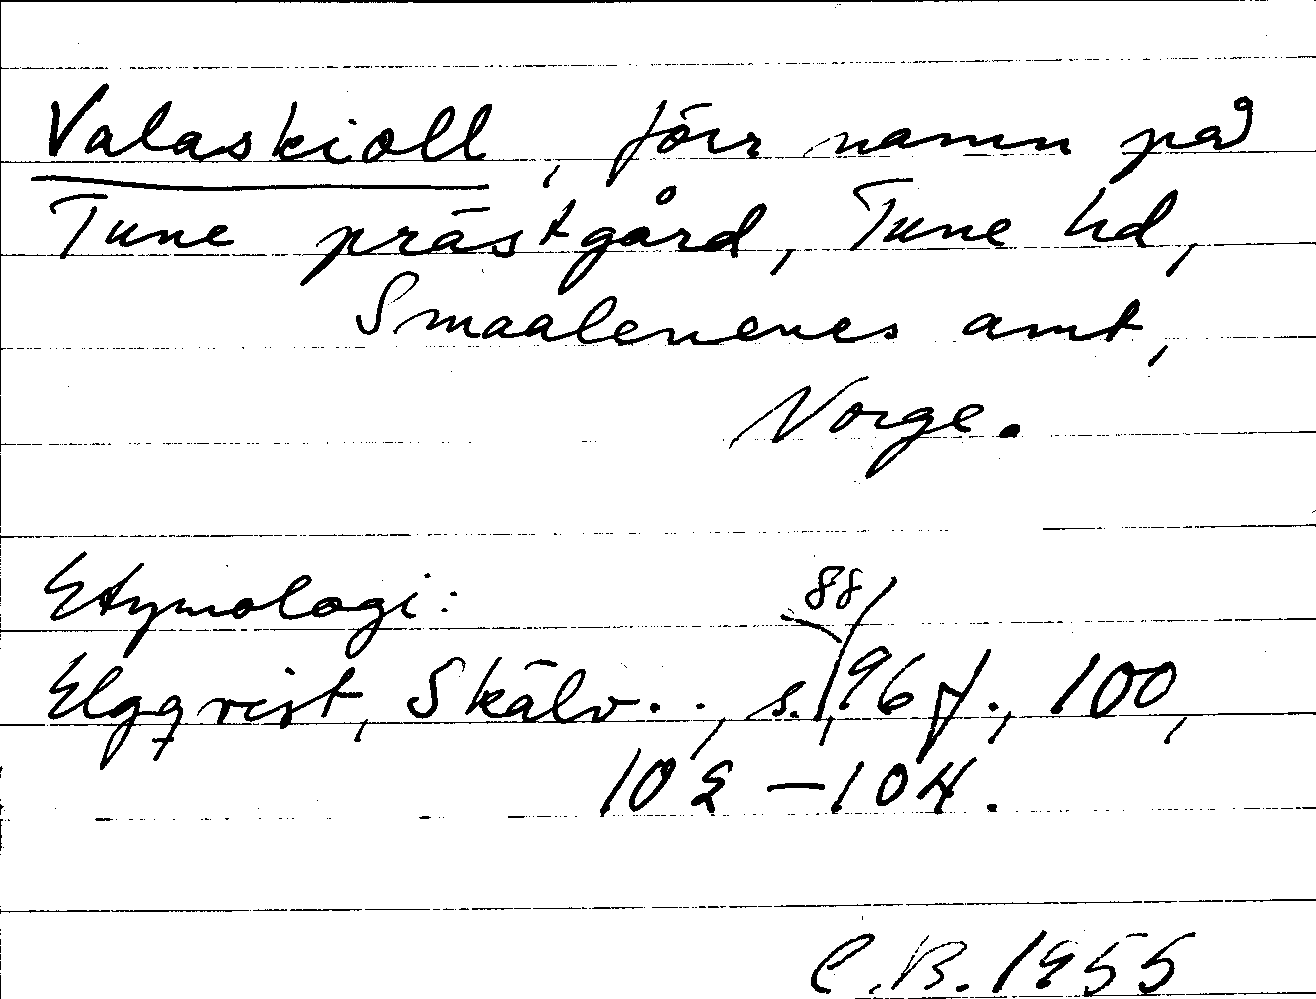 Valaskioll, förr namn på
Tune prästgård, Tune hd,
Smaalenenes amt,
Norge.
Etymologi:
Elgqvist, Skälv.., s. 88, 96 f., 100,
102-104.
C.B. 1955